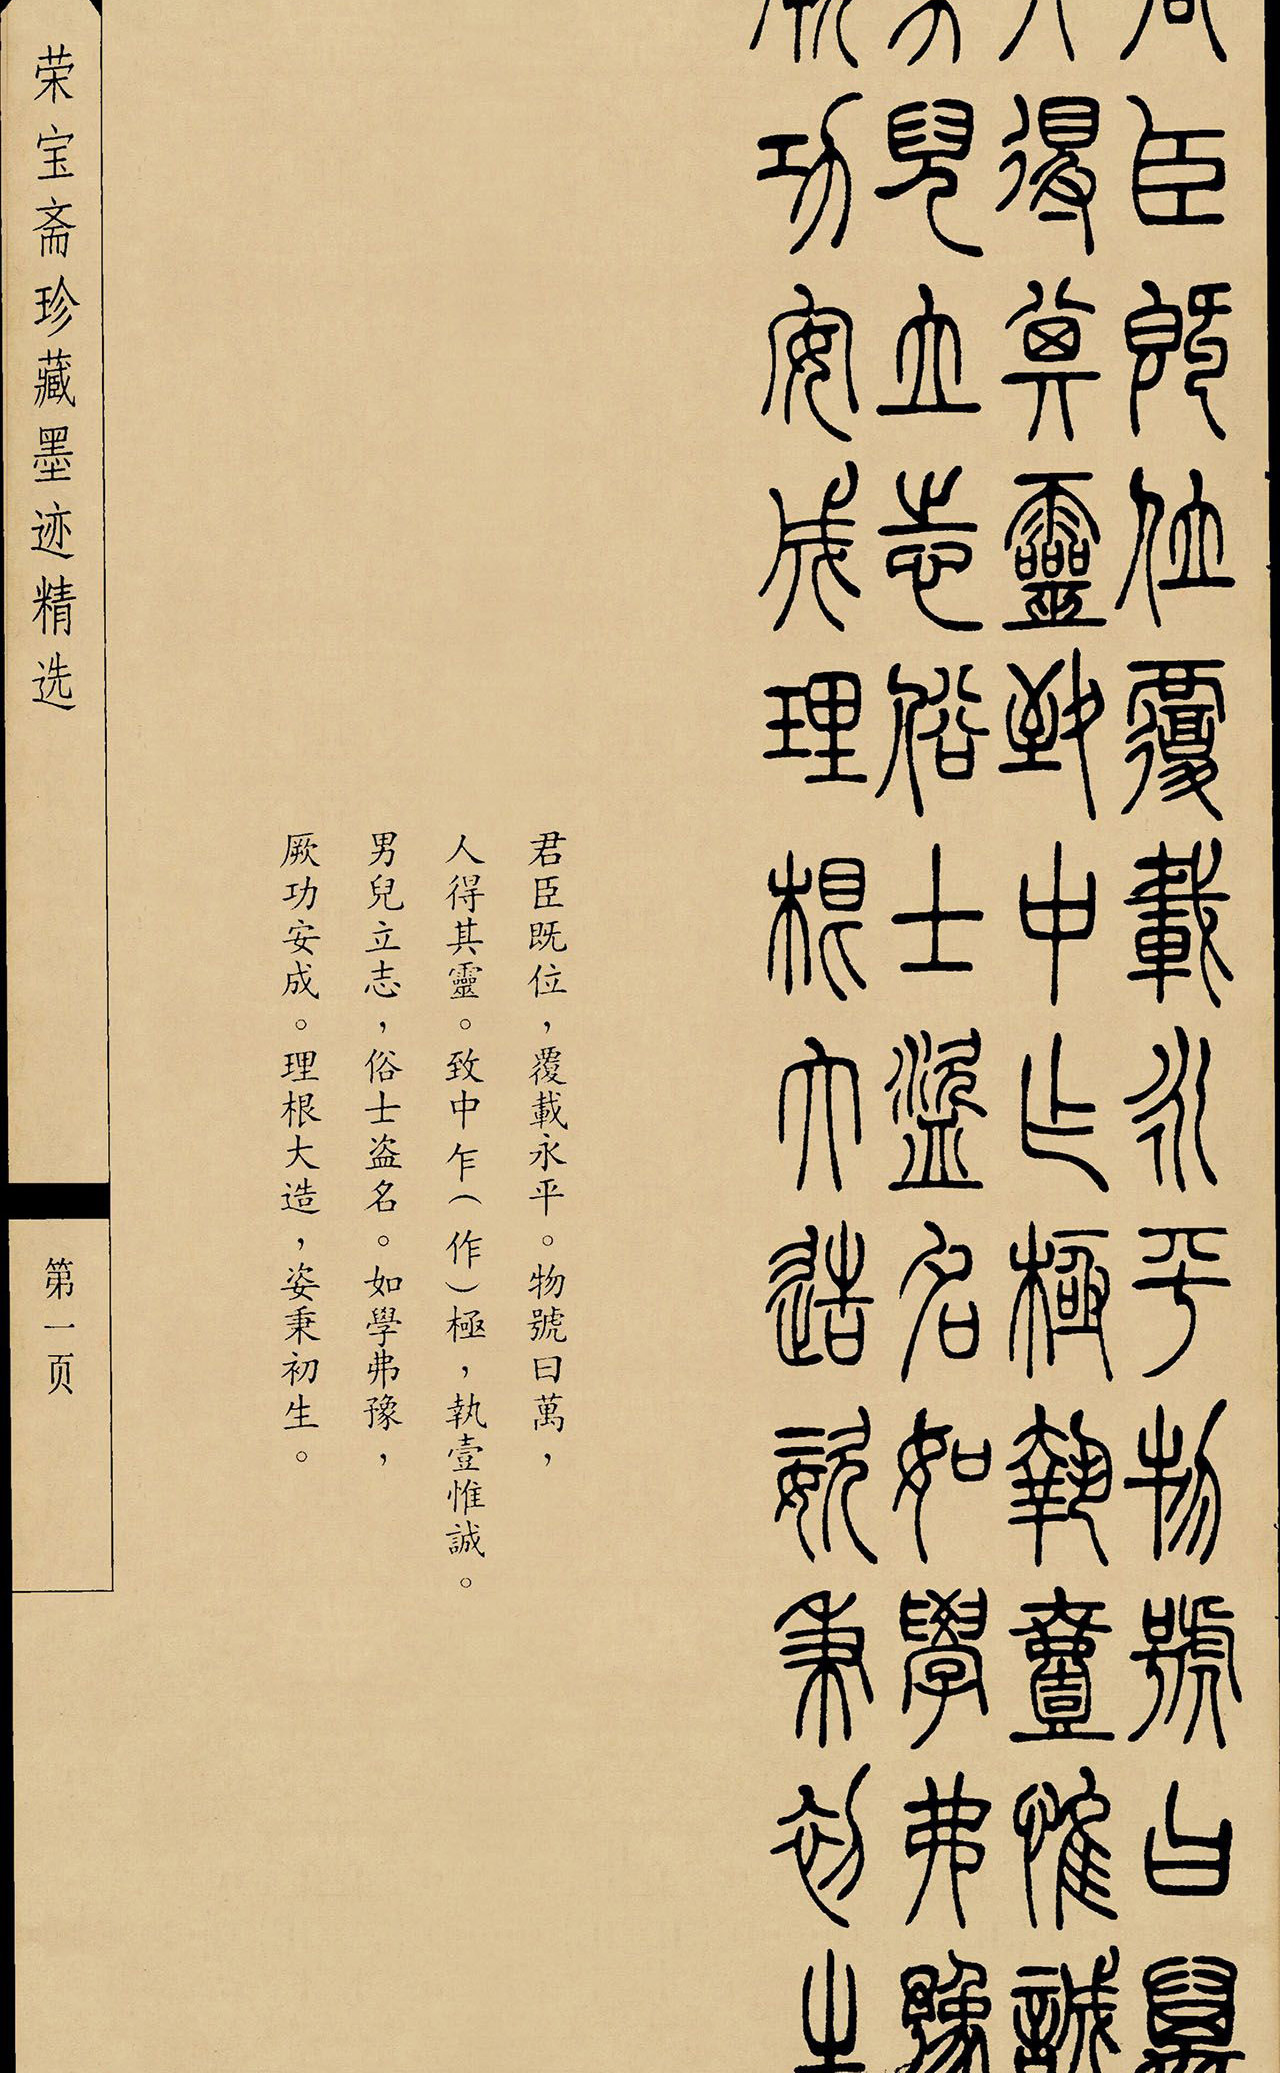 君臣既位覆載永平物號曰萬
人得其靈致中乍極執壹惟誠
男兒立志俗士盜名如學弗豫
厥功安成理根大造姿秉初生
君臣既位，覆載永平。物號曰萬，
人得其靈。致中乍（作）極，執壹惟誠。
男兒立志，俗士盗名。如學弗豫，
厥功安成。理根大造，姿秉初生。
荣宝斋珍藏墨迹精选
第一页